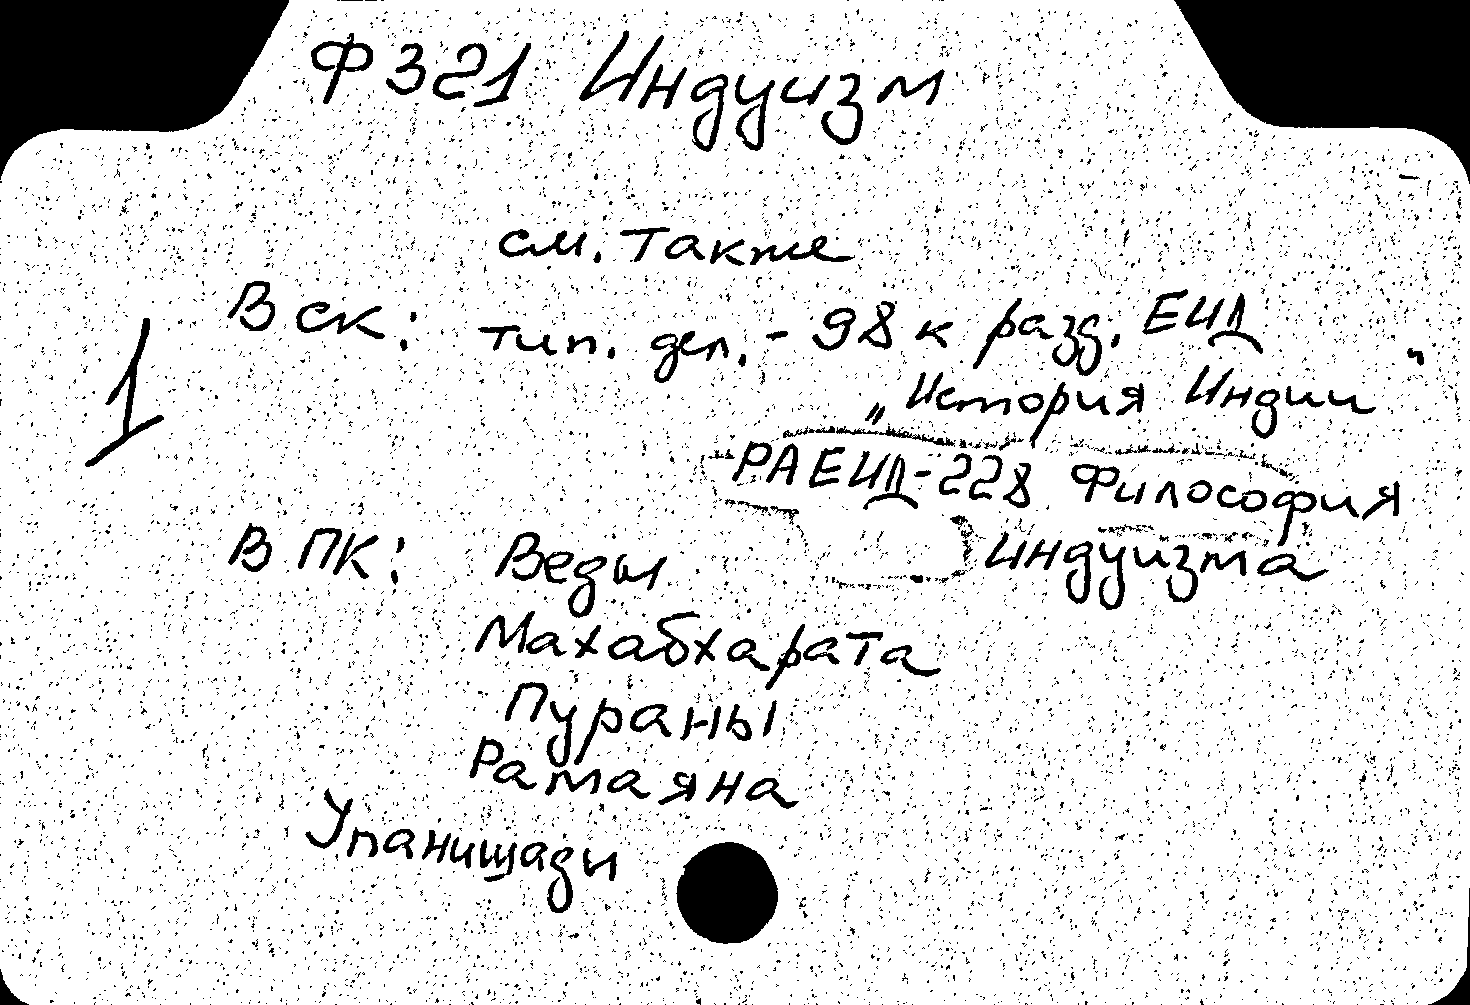 Ф321 Индуизм
см. также
В СК: тип. дел. - 98 к разд. ЕИД
„История Индии"
РАЕИД-228 Философия
индуизма
1
В ПК: Веды
Махабхарата
Пураны
Рамаяна
Упанищады